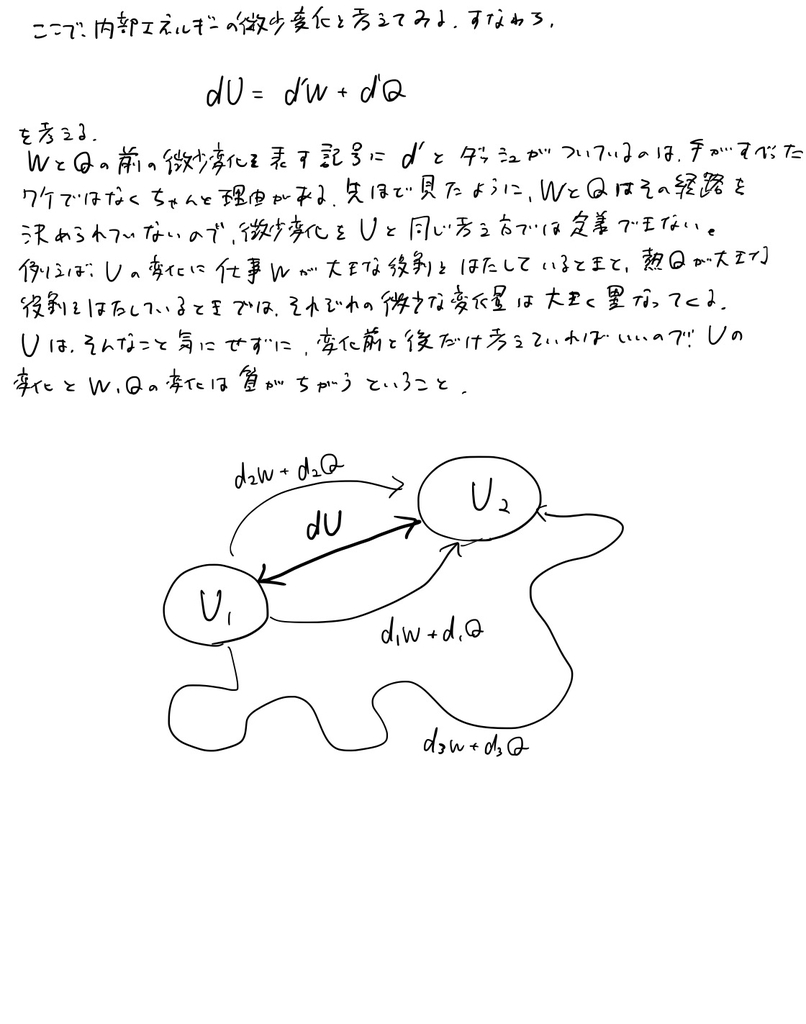 ここで、内部エネルギーの微少変化を考えてみる。すなわち、
dU = d'W + d'Q
を考える。
WとQの前の微少変化を表す記号に d' とダッシュがついているのは、手がすべった
ワケではなくちゃんと理由がある。先ほど見たように、WとQはその経路を
決められていないので、微少変化をUと同じ考え方では定義できない。
例えば、Uの変化に仕事Wが大きな役割をはたしているときと、熱Qが大きな
役割をはたしているときでは、それぞれの微少な変化量は大きく異なってくる。
Uは、そんなこと気にせずに、変化前と後だけ考えていればいいので、Uの
変化とW、Qの変化は質がちがうということ。
d₂W + d₂Q
U₂
dU
U₁
d₁W + d₁Q
d₃W + d₃Q